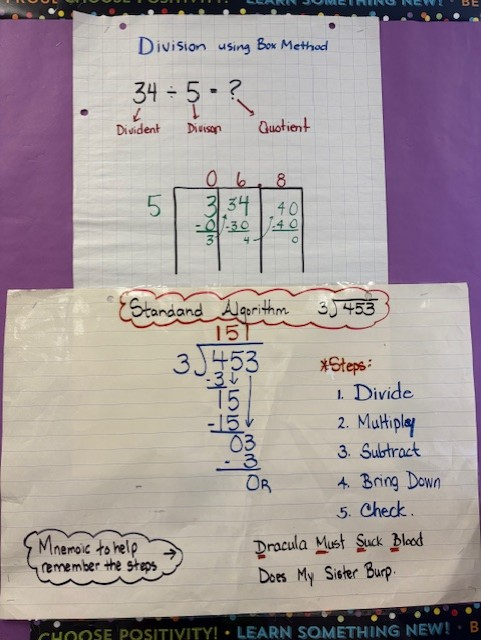 PROUL CHOOSE POSITIVITY! LEARN SOMETHING NEW! BE
Division using Box Method
34 ÷ 5 = ?
Divident Divison Quotient
0 6 . 8
5 3 34 40
-0 -30 -40
3 4 0
Standard Algorithm 3√453
151
3√453
-3
15
-15
03
- 3
0R
*Steps:
1. Divide
2. Multiplay
3. Subtract
4. Bring Down
5. Check.
Mnemoic to help
remember the steps
Dracula Must Suck Blood
Does My Sister Burp.
CHOOSE POSITIVITY! • LEARN SOMETHING NEW! • BE